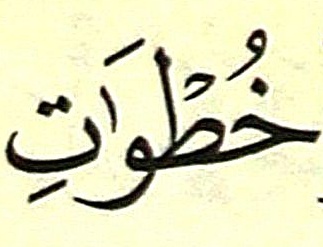 خُطْوَاتِ